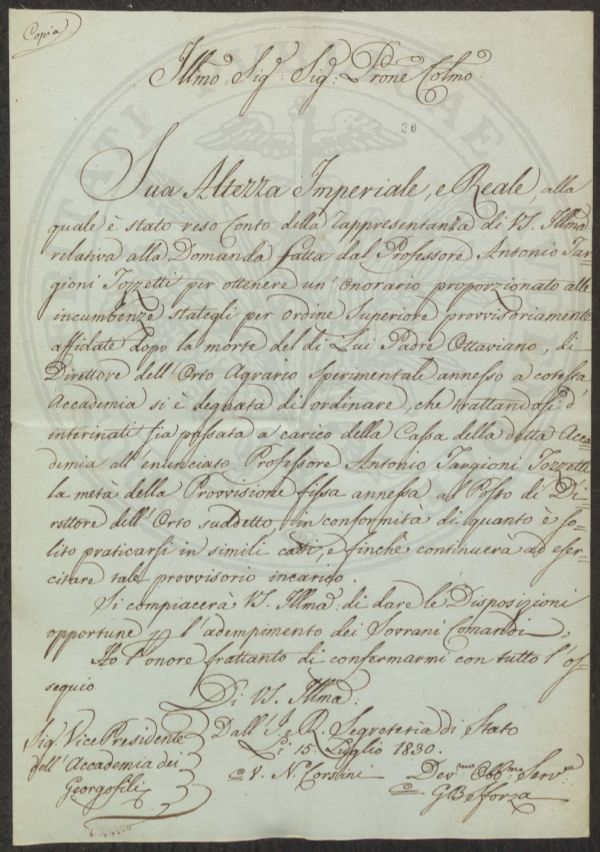 Copia
Illmo. Sig.e Sig.e Prone Colmo.
20
Sua Altezza Imperiale, e Reale, alla
quale è stato reso Conto della Rappresentanza di VS. Illma
relativa alla Domanda fatta dal Professore Antonio Tar-
gioni Tozzetti per ottenere un' Onorario proporzionato alle
incumbenze stategli per ordine Superiore provvisoriamente
affidate dopo la morte del di Lui Padre Ottaviano, di
Direttore dell' Orto Agrario Sperimentale annesso a cotesta
Accademia si è degnata di ordinare, che trattandosi d'
interinati sia passata a carico della Cassa della detta Acca-
demia all' enunciato Professore Antonio Targioni Tozzetti
la metà della Provvisione fissa annessa al Posto di Di-
rettore dell' Orto suddetto, in conformità di quanto è so-
lito praticarsi in simili casi, e finchè continuerà ad eser-
citare tale provvisorio incarico.
Si compiacerà VS. Illma. di dare le Disposizioni
opportune p l' adempimento dei Sovrani Comandi,
Ho l' onore frattanto di confermarmi con tutto l' os-
sequio
Di VS. Illma.
Dall' I. e R. Segreteria di Stato
Li 15. Luglio 1830.
Sig.e Vice Presidente
dell' Accademia dei
Georgofili
V. N. Corsini
Dev.mo Obb.mo Serv.e